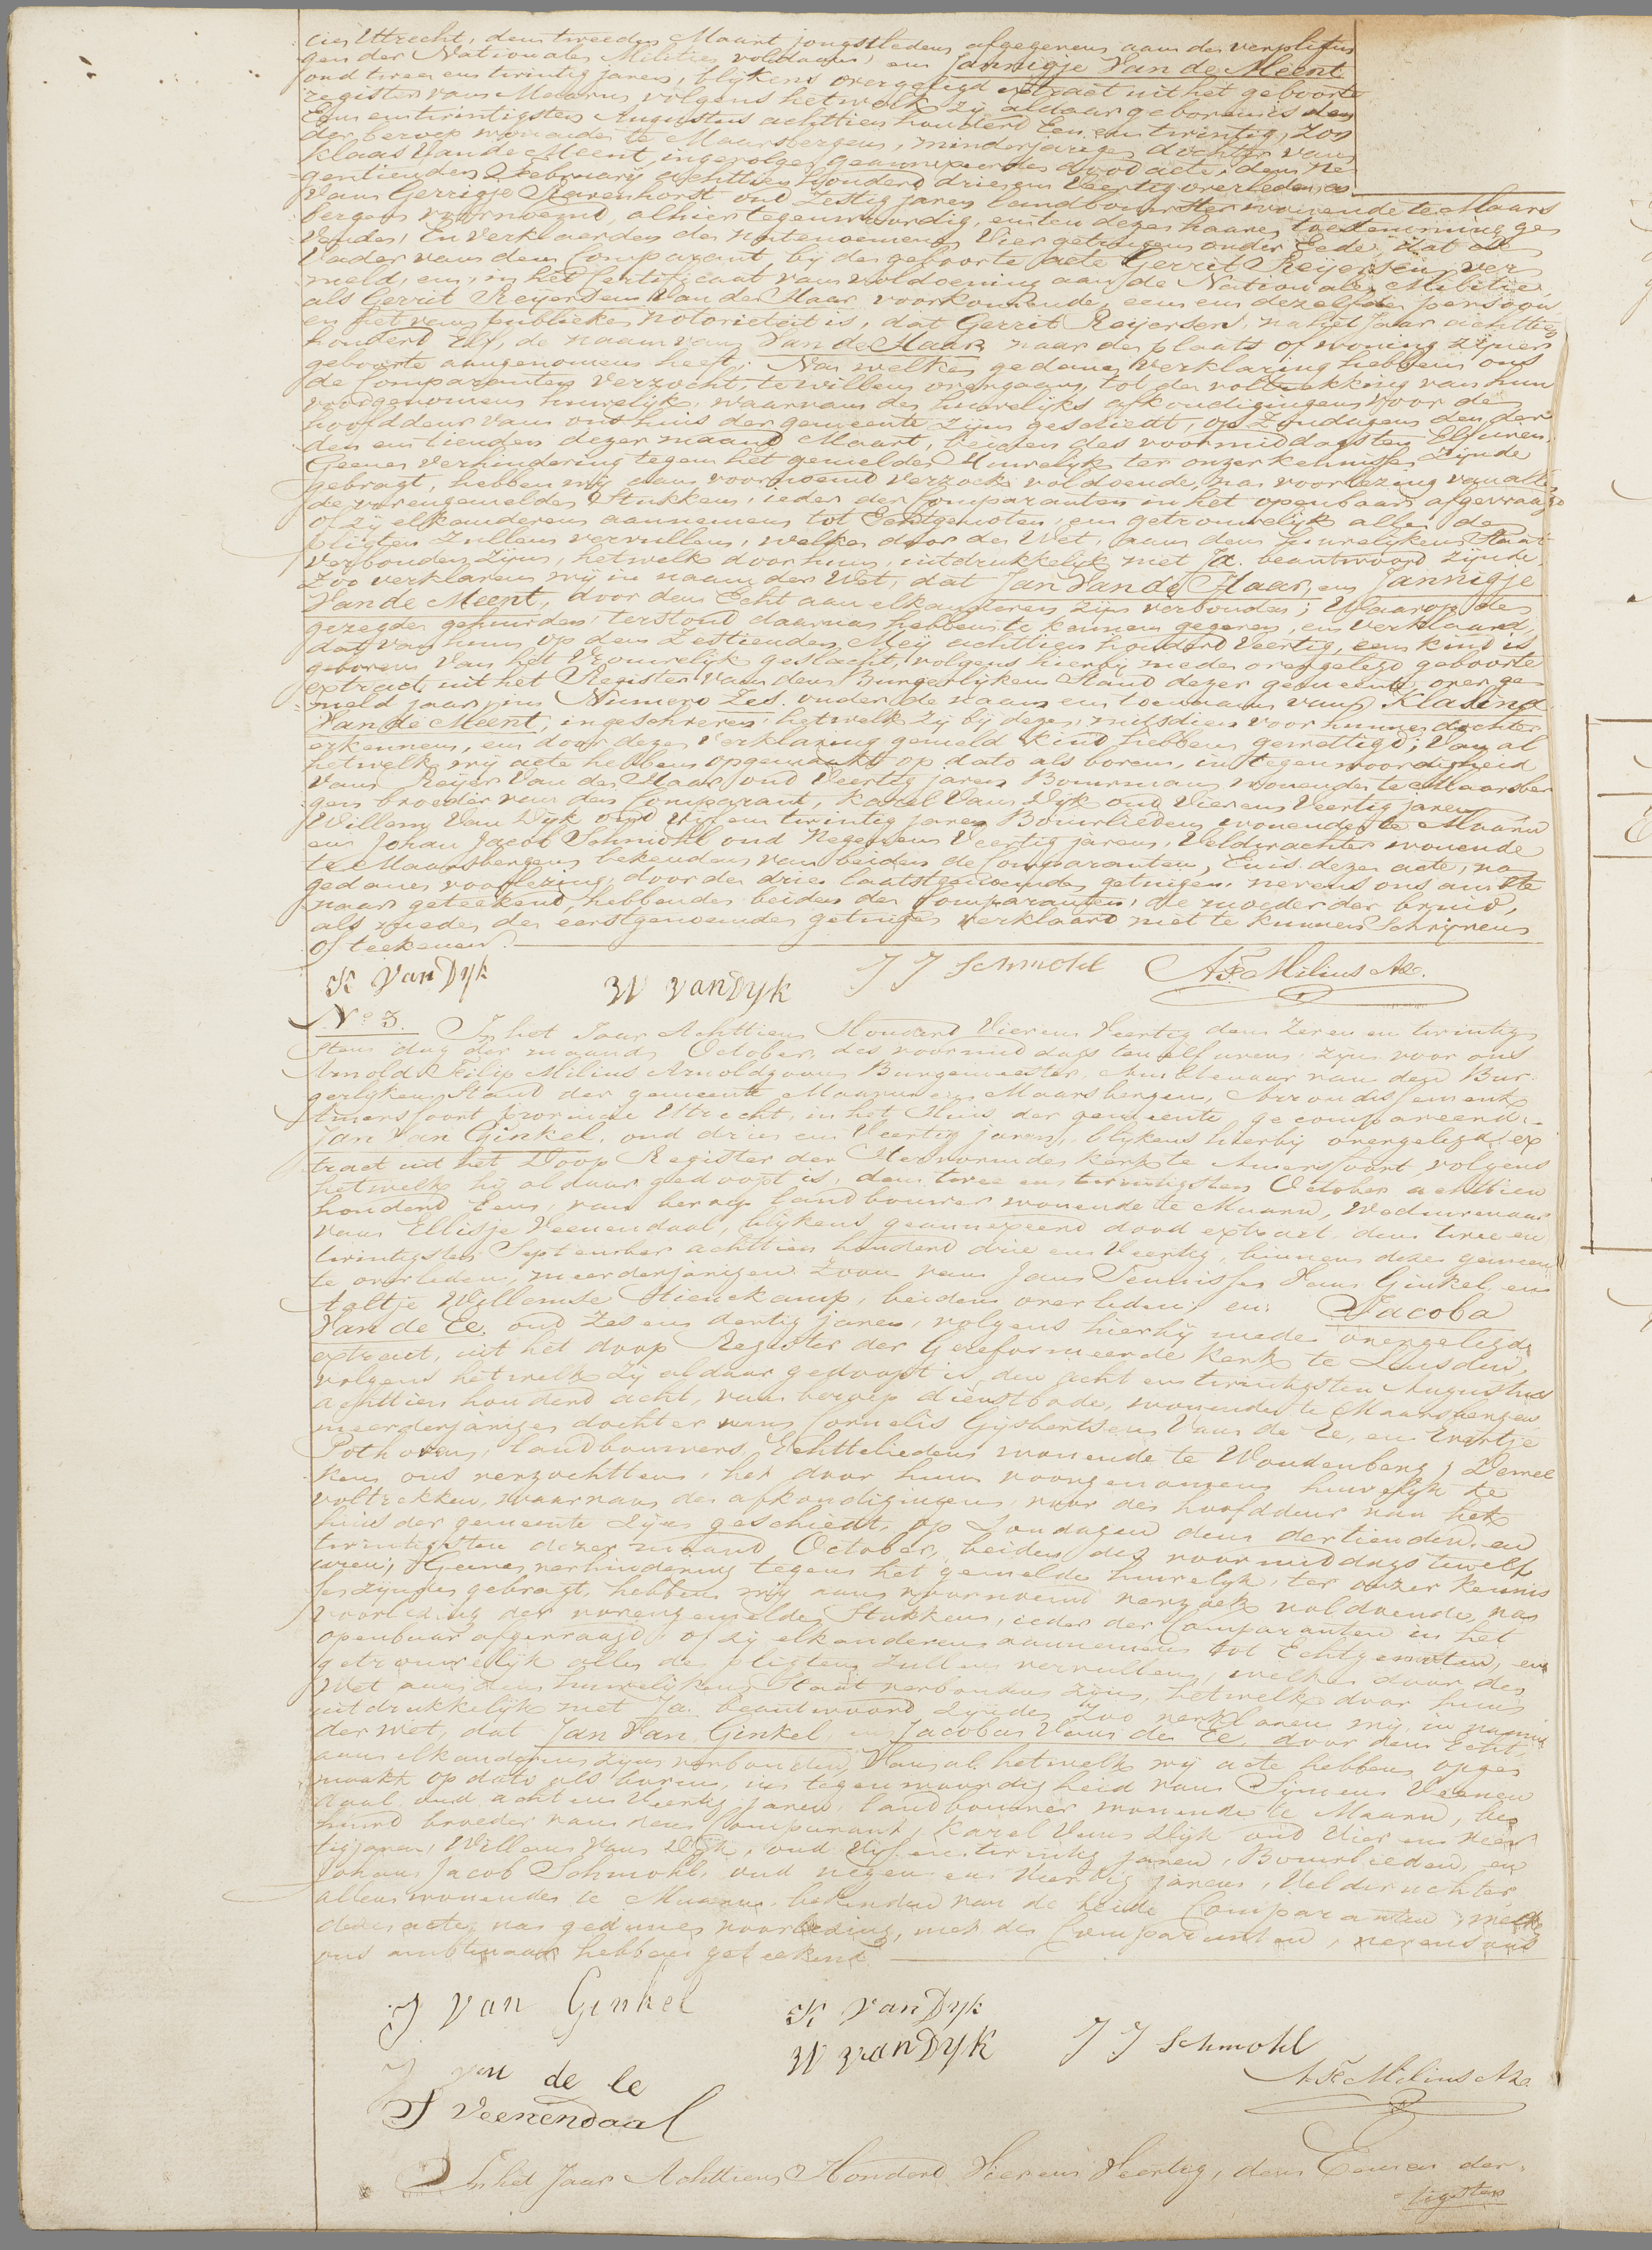 cie Utrecht, den tweeden Maart jongstleden afgegeven aan de verpligtin
gen der Nationale Militie voldaan, en Jannigje Van de Meent
oud twee en twintig jaren, blijkens overgelegd extract uit het geboorte
register van Maarn, volgens hetwelk zij aldaar geboren is den
Een en twintigsten Augustus achttien honderd Een en twintig, zon
der beroep wonende te Maarsbergen, minderjarige dochter van
Klaas Van de Meent, ingevolge geannexeerde dood acte, den Ne
gentienden February achttien honderd drie en Veertig overleden, en
Van Gerrigje Ravenhorst oud Zestig jaren landbouwster wonende te Maars
bergen voornoemd, alhier tegenwoordig, en ten deze hare toestemming ge
vende. En verklaarden de natenoemene Vier getuigen onder Eede, dat de
Vader van den Comparant, bij de geboorte acte Gerrit Reijersen ver
meld, en in het Certificaat van voldoening aan de Nationale Militie
als Gerrit Reyersen Van de Haar voorkomende, een en dezelfde persoon
en het van publieke notoriteit is, dat Gerrit Reijersen, na het Jaar achttien
honderd elf, de naam van Van de Haar naar de plaats of woning zijner
geboorte aangenomen heeft. Na welke gedane verklaring hebben ons
de Comparanten verzocht, te willen overgaan, tot de voltrekking van hun
voorgenomen huwelijk, waarvan de huwelijks afkondigingen voor de
hoofddeur van ons huis der gemeente zijn geschiedt, op Zondagen den der
den en tienden dezer maand Maart, beiden des voormiddags ten Elf uren.
Geene verhindering tegen het gemelde Huwelijk ter onzer kennisse zijnde
gebragt, hebben wij aan voornoemd verzoek voldoende, na voorlezing van alle
de vorengemelde Stukken, ieder der Comparanten in het openbaar afgevraagd
of zij elkanderen aannemen tot Echtgenoten, en getrouwelijk alle de
pligten zullen vervullen, welke door de Wet, aan den huwelijken Staat
verbonden zijn, hetwelk door hun, uitdrukkelijk met Ja. beantwoord zijnde,
Zoo verklaren wij in naam der Wet, dat Jan Van de Haar, en Jannigje
Van de Meent, door den Echt aan elkanderen zijn verbonden; Waarop de
gezegde gehuwden, terstond daarna hebben te kennen gegeven, en verklaard,
dat van hun op den Zestienden Meij achttien honderd Veertig, een kind is
geboren van het Vrouwelijk geslacht, volgens hierbij mede overgelegd geboorte
extract, uit het Register van den Burgerlijken Stand dezer gemeente, over ge
meld jaar, in Numero Zes. onder de naam en toenaam van Klasina
Van de Meent, ingeschreven, hetwelk zij bij deze, midsdien voor hunne dochter
erkennen, en door deze verklaring gemeld kind hebben gewettigd; Van al
hetwelk wij acte hebben opgemaakt op dato als boven, in tegenwoordigheid
van Reijer Van de Haar, oud Veertig jaren Bouwman wonende te Maarsber
gen broeder van den Comparant, Karel Van Dijk oud Vier en Veertig jaren,
Willem Van Dijk oud Vijf en twintig jaren Bouwlieden wonende te Maarn
en Johan Jacob Schmohl oud Negen en Veertig jaren, Veldwachter wonende
te Maarsbergen bekenden van beiden de Comparanten, En is deze acte, na
gedane voorlezing, door de drie laatstgenoemde getuigen, nevens ons ambte
naar geteekend, hebbende beiden de Comparanten, de moeder der bruid,
als mede de eerstgenoemde getuige verklaard niet te kunnen Schrijven
of teekenen.
K Van Dyk W van Dyk J J Schmohl A.F. Milius Az.
No 3. In het Jaar Achttien Honderd Vier en Veertig den Zeven en twintig
sten dag der maand October, des voormiddags ten elf uren zijn voor ons
Arnold Filip Milius Arnoldzoon Burgemeester Ambtenaar van den Bur
gerlijken Stand der gemeente Maarn en Maarsbergen, Arrondissement
Amersfoort provincie Utrecht, in het Huis der gemeente gecompareerd:
Jan Van Ginkel, oud drie en Veertig jaren, blijkens hierbij overgelegd ex
tract uit het Doop Register der Hervormde kerk te Amersfoort volgens
hetwelk hij aldaar gedoopt is, den twee en twintigsten October achttien
honderd Een, van beroep landbouwer wonende te Maarn, Weduwenaar
van Ellisje Veenendaal, blijkens geannexeerd dood extract den twee en
twintigsten September achttien honderd drie en Veertig, binnen deze gemeen
te overleden, meerderjarigen Zoon van Jan Teunisse Van Ginkel en
Aaltje Willemse Stienekamp, beiden overleden; en Jacoba
Van de Ee. oud Zes en dertig jaren, volgens hierbij mede overgelegde
extract, uit het doop Register der Gereformeerde kerk te Leusden,
volgens hetwelk zij aldaar gedoopt is, den acht en twintigsten Augustus
achttien honderd acht, van beroep dienstbode, wonende te Maarsbergen,
meerderjarige dochter van Cornelis Gijsbertsen Van de Ee, en Evertje
Pothoven, landbouwers, Echtelieden wonende te Woudenberg; Dewel
ken ons verzochtten, het door hun voorgenomen huwelijk te
voltrekken, waarvan de afkondigingen voor de hoofddeur van het
huis der gemeente zijn geschiedt, op Zondagen den dertienden en
twintigsten dezer maand October, beiden des voormiddags twelf
uren; Geene verhindering tegen het gemelde huwelijk, ter onzer kennis
se zijnde gebragt, hebben wij aan voornoemd verzoek voldoende, na
voorlezing der vorengemelde Stukken, ieder der Comparanten in het
openbaar afgevraagd, of zij elkanderen aannemen tot Echtgenoten, en
getrouwelijk alle de pligten zullen vervullen, welke door de
Wet aan den huwelijken Staat verbonden zijn, hetwelk door hun
uitdrukkelijk met Ja. beantwoord zijnde, Zoo verklaren wij in naam
der wet, dat Jan Van Ginkel en Jacoba Van de Ee door den Echt
aan elkanderen zijn verbonden, Van al hetwelk wij acte hebben opge
maakt op dato als boven, in tegenwoordigheid van Simon Veenen
daal oud acht en Veertig jaren landbouwer wonende te Maarn, be
huwd broeder van den Comparant, Karel Van Dijk oud Vier en Veer
tig jaren, Willem Van Dijk, oud Vijf en twintig jaren, Bouwlieden, en
Johan Jacob Schmohl, oud negen en Veertig jaren, Veldwachter
allen wonende te Maarn, bekenden van de beide Comparanten, welke
deze acte, na gedane voorlezing, met de Comparanten, nevens ons
ons ambtenaar hebben geteekend.
J van Ginkel K Van Dyk
W van Dyk J J Schmohl
J van de Ee A.F. Milius Az.
S Veenendaal
In het Jaar Achttien Honderd Vier en Veertig, den Een en der-
tigsten